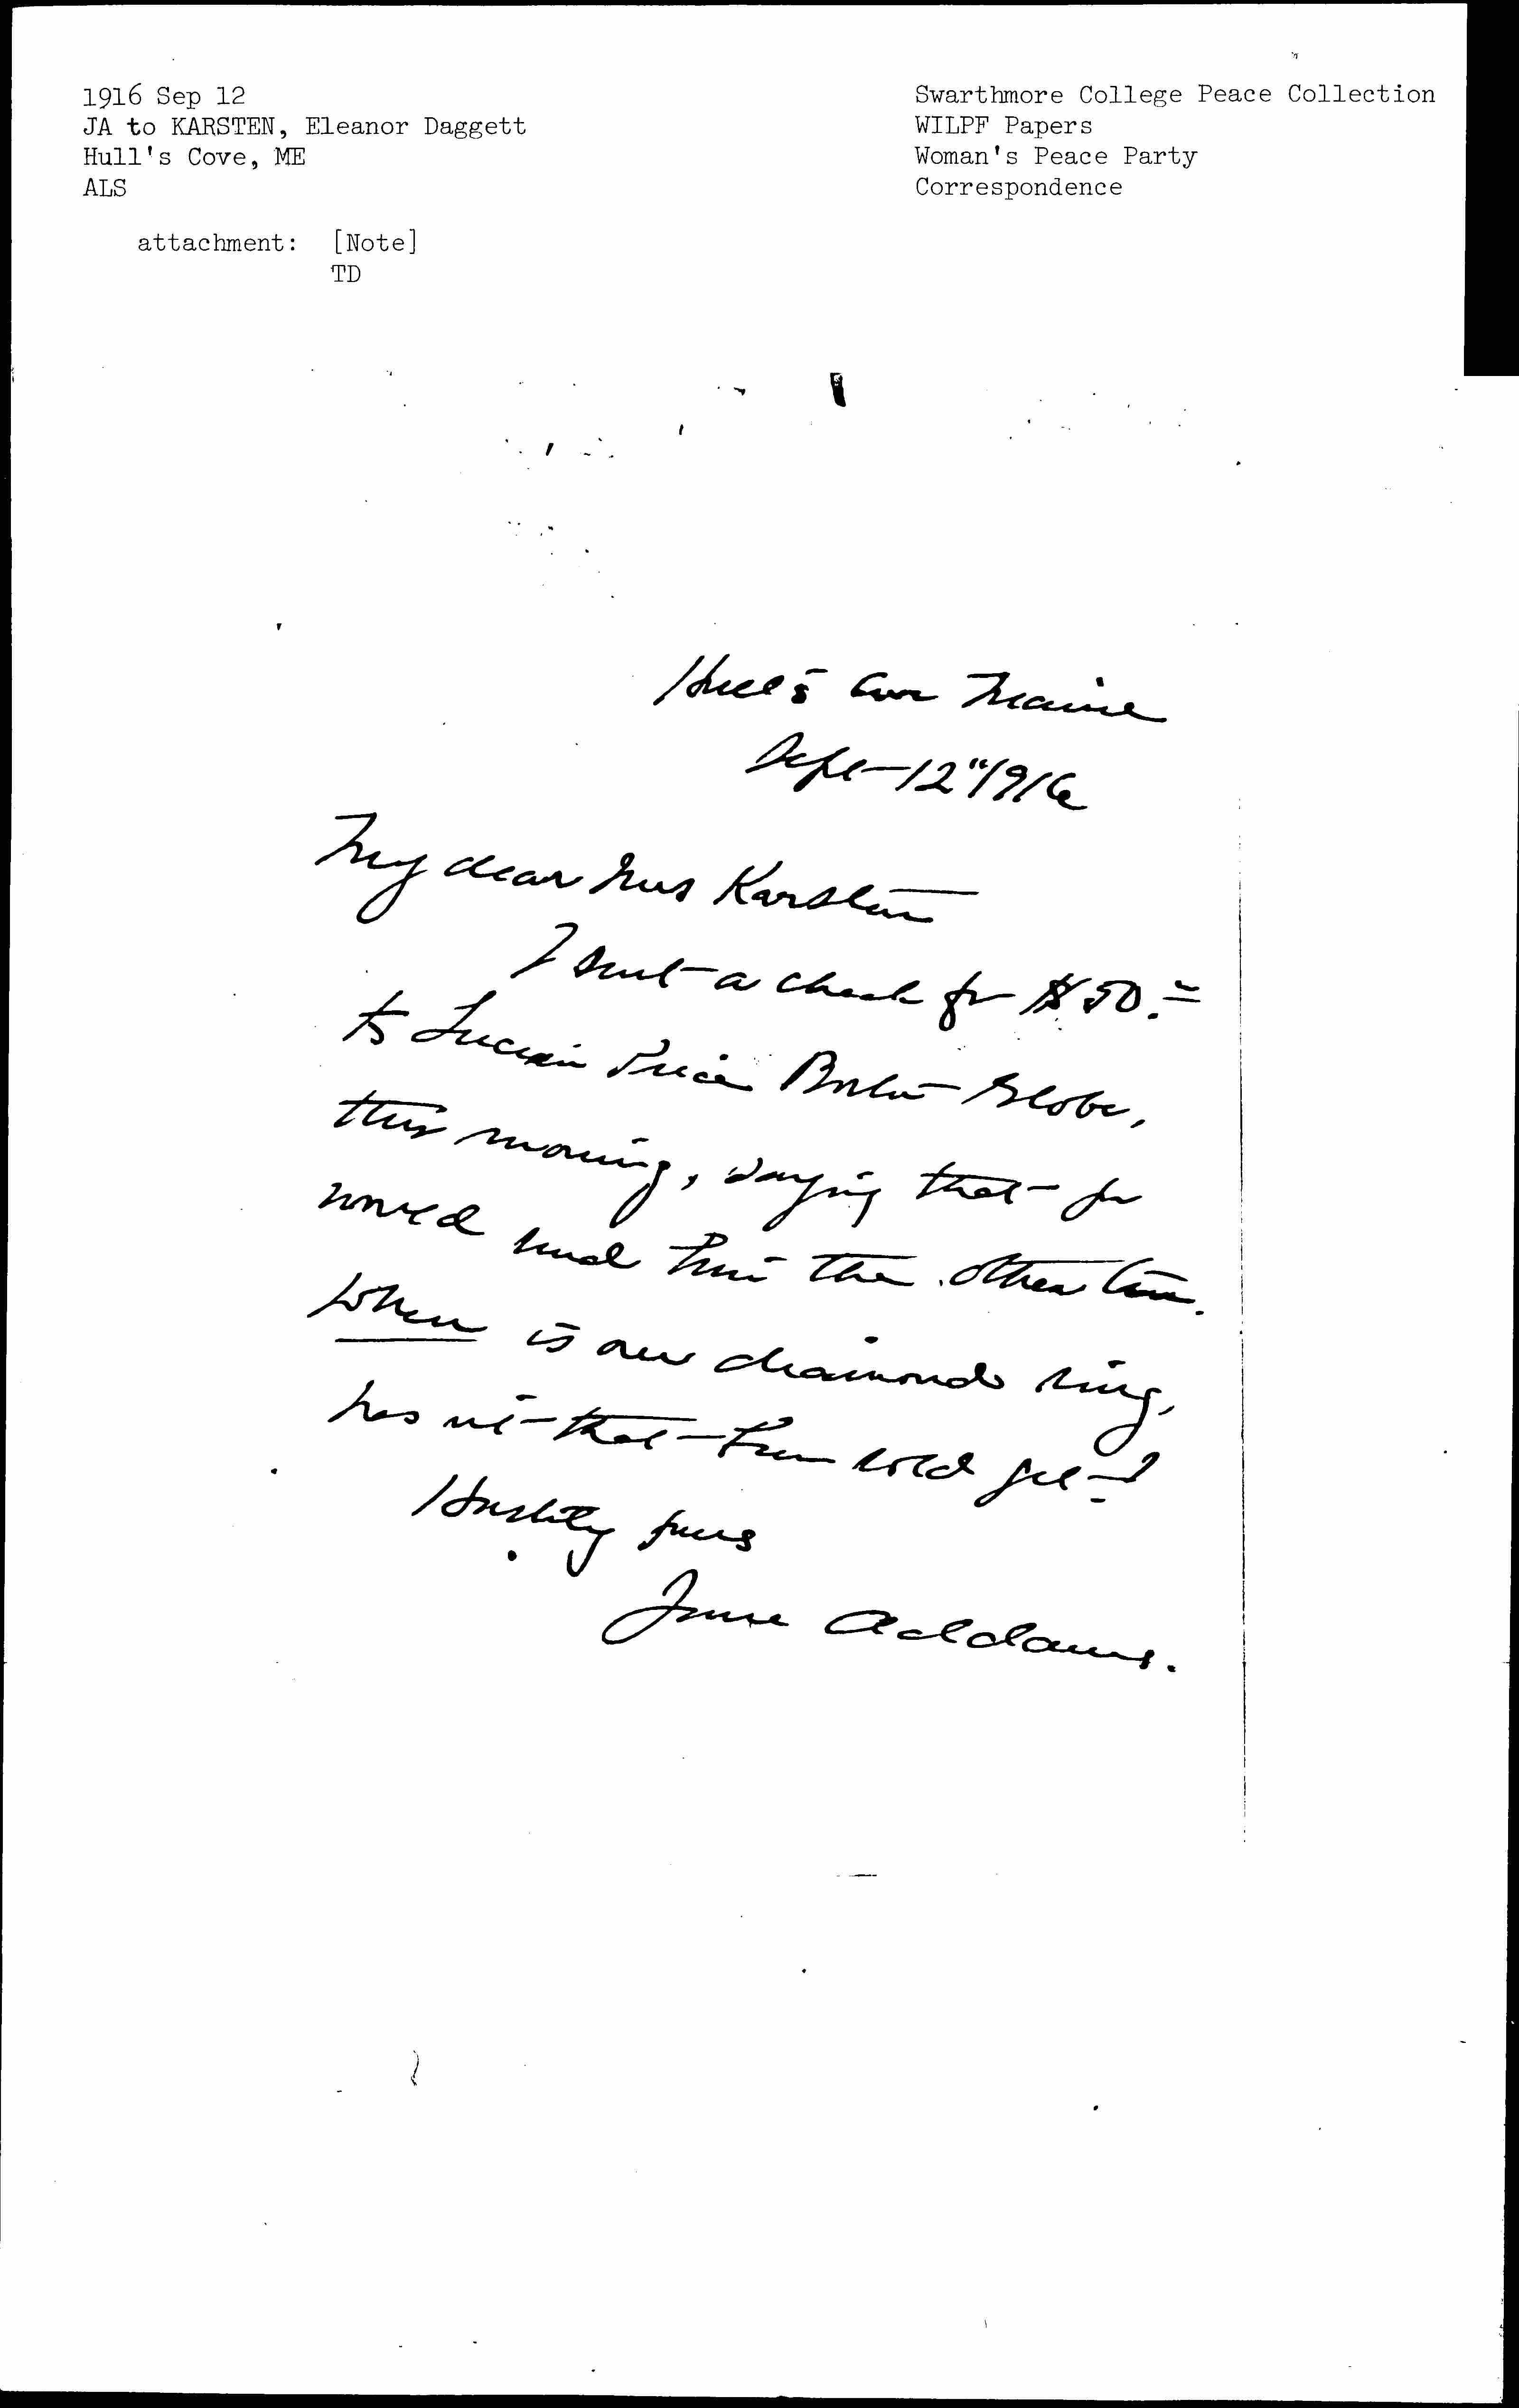 1916 Sep 12
JA to KARSTEN, Eleanor Daggett
Hull's Cove, ME
ALS
attachment: [Note]
TD
Swarthmore College Peace Collection
WILPF Papers
Woman's Peace Party
Correspondence
Hull's Cove Maine
Sept - 12" 1916
My dear Mrs Karsten
I sent a check for $50.=
to Lucien Price Boston Globe,
this morning, saying that you
would send him the other two.
When is our diamond ring,
has not that been sold yet?
Hastily yours
Jane Addams.